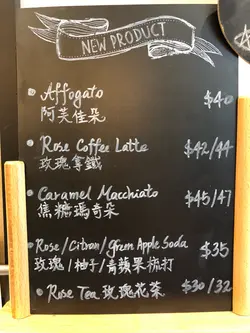 NEW PRODUCT
Affogato $40
阿芙佳朵
Rose Coffee Latte $42/44
玫瑰拿鐵
Caramel Macchiato $45/47
焦糖瑪奇朵
Rose/Citron/Green Apple Soda $35
玫瑰/柚子/青蘋果梳打
Rose Tea 玫瑰花茶 $30/32